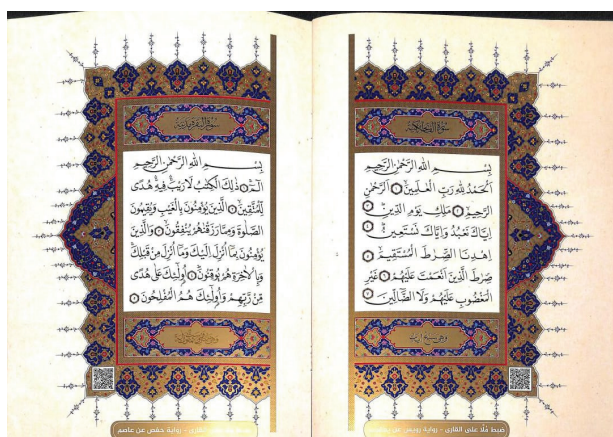 سورة الفاتحة مكية
بِسْمِ اللهِ الرَّحْمٰنِ الرَّحِيمِ
اَلْحَمْدُ لِلهِ رَبِّ الْعٰلَمِينَ ۝ اَلرَّحْمٰنِ
الرَّحِيمِ ۝ مَلِكِ يَوْمِ الدِّينِ ۝
اِيَّاكَ نَعْبُدُ وَاِيَّاكَ نَسْتَعِينُ ۝
اِهْدِنَا الصِّرٰطَ الْمُسْتَقِيمَ ۝
صِرٰطَ الَّذِينَ اَنْعَمْتَ عَلَيْهُمْ ۝ غَيْرِ
الْمَغْضُوبِ عَلَيْهُمْ وَلَا الضَّالِّينَ ۝
وهي سبع آيات
ضبط ملا على القارئ - رواية رويس عن
سورة البقرة مدنية
بِسْمِ اللهِ الرَّحْمٰنِ الرَّحِيمِ
الٓمٓ ۝ ذٰلِكَ الْكِتٰبُ لَا رَيْبَ فِيهِ هُدًى
لِلْمُتَّقِينَ ۝ اَلَّذِينَ يُؤْمِنُونَ بِالْغَيْبِ وَيُقِيمُونَ
الصَّلٰوةَ وَمِمَّا رَزَقْنٰهُمْ يُنْفِقُونَ ۝ وَالَّذِينَ
يُؤْمِنُونَ بِمَٓا اُنْزِلَ اِلَيْكَ وَمَٓا اُنْزِلَ مِنْ قَبْلِكَ
وَبِالْاٰخِرَةِ هُمْ يُوقِنُونَ ۝ اُولٰٓئِكَ عَلٰى هُدًى
مِنْ رَبِّهِمْ وَاُولٰٓئِكَ هُمُ الْمُفْلِحُونَ ۝
القارئ - رواية حفص عن عاصم